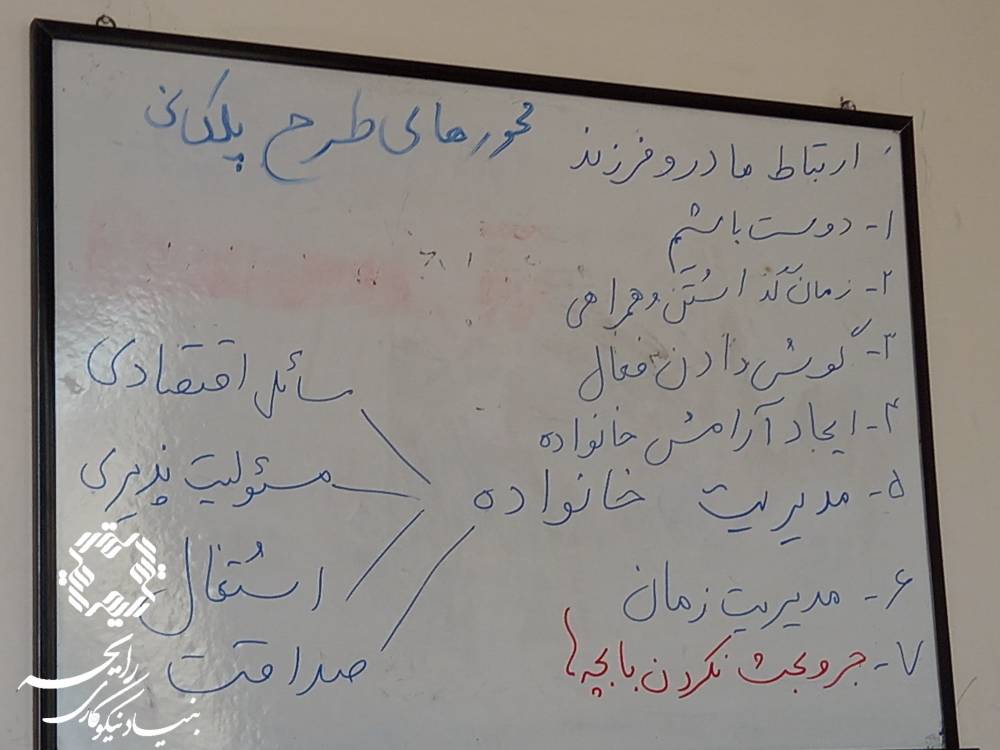 محورهای طرح پلکانی
ارتباط مادر و فرزند
۱- دوست باشیم
۲- زمان گذاشتن و همراهی
۳- گوش دادن فعال
۴- ایجاد آرامش خانواده
۵- مدیریت خانواده
مسائل اقتصادی
مسئولیت پذیری
اشتغال
صداقت
۶- مدیریت زمان
۷- جر و بحث نکردن با بچه ها
بنیاد نیکوکاری رایحه